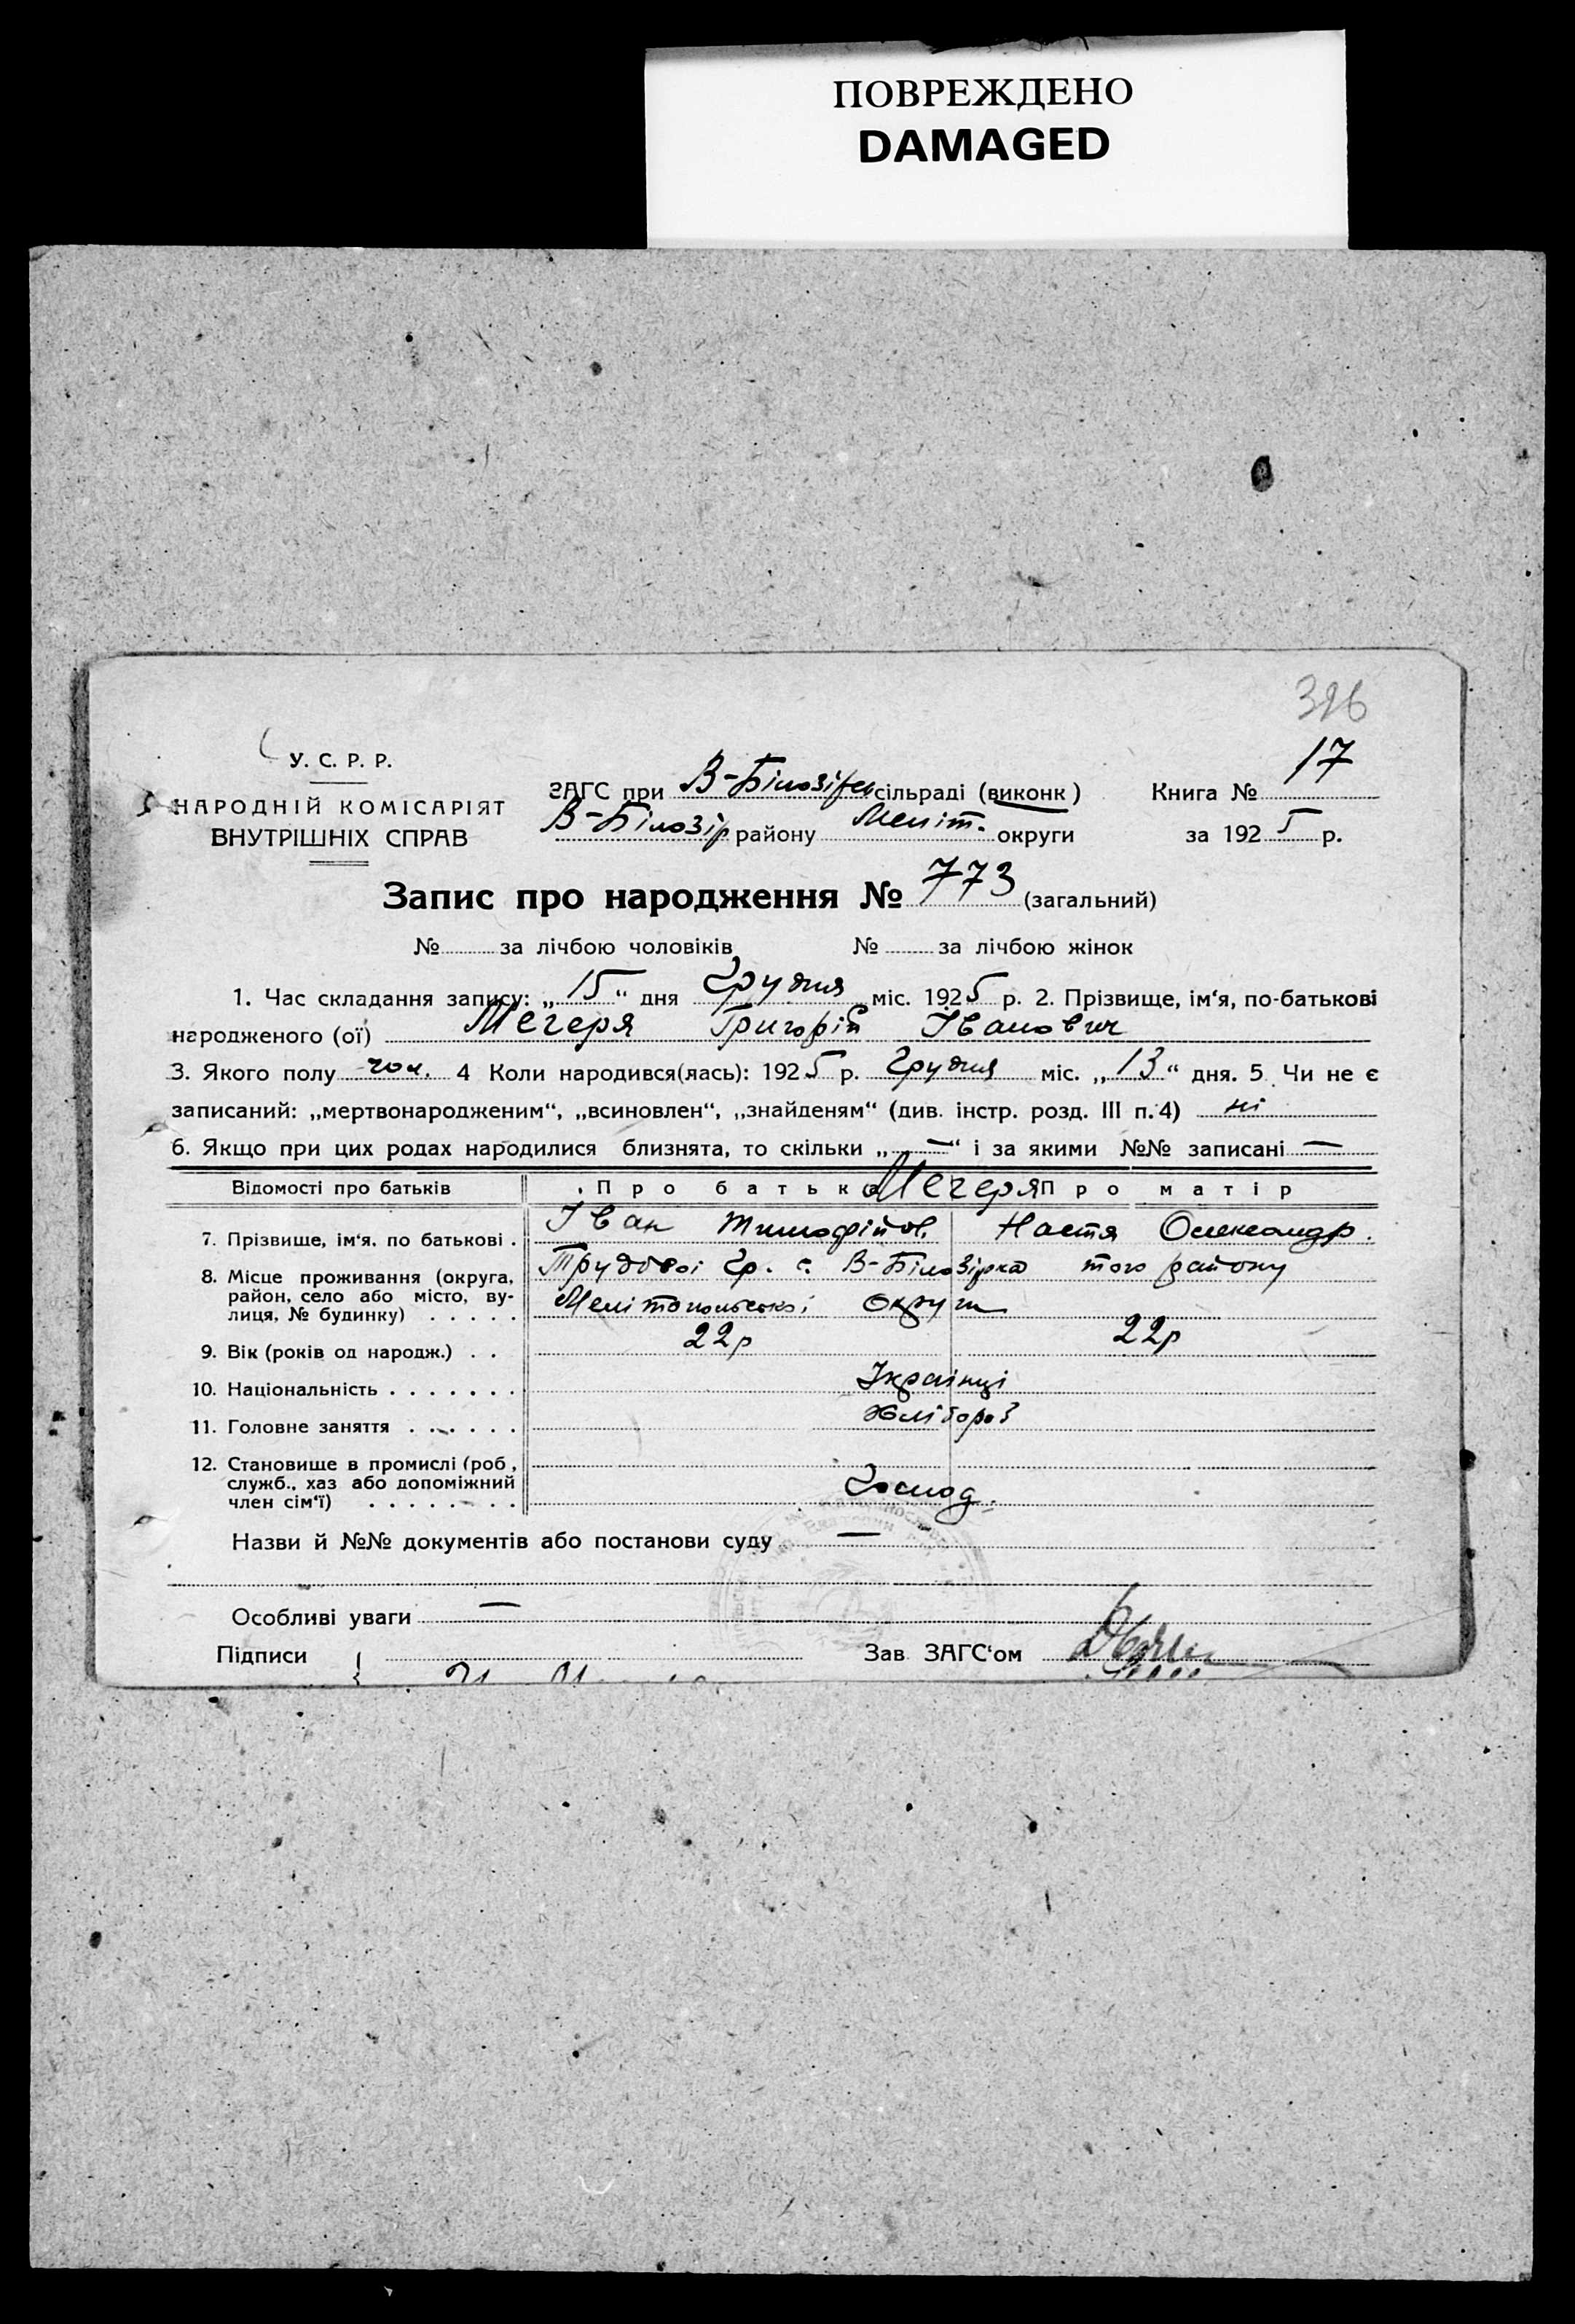 ПОВРЕЖДЕНО
DAMAGED
316
У. С. Р. Р.
НАРОДНІЙ КОМІСАРІЯТ
ВНУТРІШНІХ СПРАВ
ЗАГС при В-Білозірск сільраді (виконк)
В-Білозір району Меліт. округи
Книга № 17
за 1925 р.
Запис про народження № 773 (загальний)
№ за лічбою чоловіків № за лічбою жінок
1. Час складання запису: „15“ дня Грудня міс. 1925 р. 2. Прізвище, ім‘я, по-батькові
народженого (ої) Мегеря Григорій Іванович
3. Якого полу чол. 4 Коли народився(лась): 1925 р. Грудня міс. „13“ дня. 5. Чи не є
записаний: „мертвонародженим“, „всиновлен“, „знайденям“ (див. інстр. розд. III п. 4) ні
6. Якщо при цих родах народилися близнята, то скільки „—“ і за якими №№ записані —
Відомості про батьків Про батька Мегеря Про матір
7. Прізвище, ім‘я, по батькові . Іван Тимофійов. Настя Олександр.
8. Місце проживання (округа, район, село або місто, вулиця, № будинку) . . . . . Трудової гр. с. В-Білозірка того району
Мелітопольської округи
9. Вік (років од народж.) . . 22р 22р
10. Національність . . . . . . . Українці
11. Головне заняття . . . . . . Хлібороб
12. Становище в промислі (роб, служб., хаз або допоміжний член сім‘ї) . . . . . . . . Господ.
Назви й №№ документів або постанови суду —
Особливі уваги —
Підписи { Зав. ЗАГС‘ом